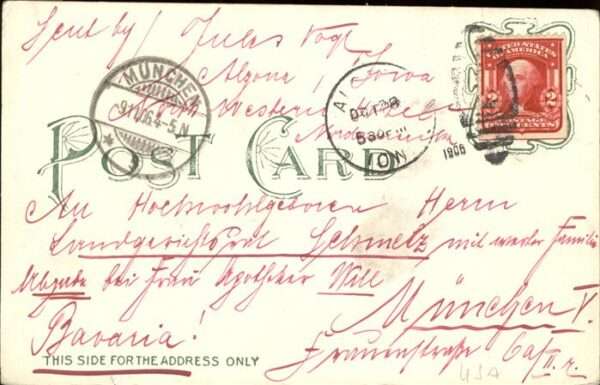 Sent by Jules Vogt
Algona, Iowa
North Western
Nordamerika
MÜNCHEN
9.11.06.4-5.N
OCT 28
530
1906
UNITED STATES
OF AMERICA
2 2
POSTAGE
TWO CENTS
POST CARD
An Hochwohlgeboren Herrn
Landgerichtsrat Schmelz, mit werter Familie
Abzugeben bei Frau Apotheker Will
München V.
Bavaria!
Frauenstraße 6a/II. r.
THIS SIDE FOR THE ADDRESS ONLY
USA